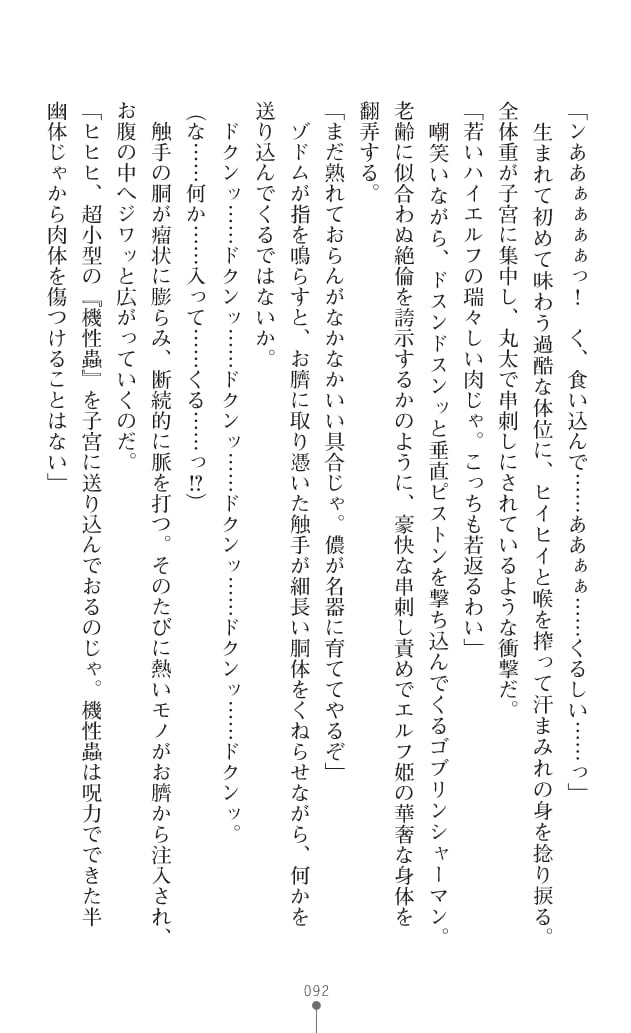 「ンああぁぁぁぁっ！　く、食い込んで……ああぁぁ……くるしい……っ」
　生まれて初めて味わう過酷な体位に、ヒイヒイと喉を搾って汗まみれの身を捻り捩る。
全体重が子宮に集中し、丸太で串刺しにされているような衝撃だ。
「若いハイエルフの瑞々しい肉じゃ。こっちも若返るわい」
　嘲笑いながら、ドスンドスンッと垂直ピストンを撃ち込んでくるゴブリンシャーマン。
老齢に似合わぬ絶倫を誇示するかのように、豪快な串刺し責めでエルフ姫の華奢な身体を
翻弄する。
「まだ熟れておらんがなかなかいい具合じゃ。儂が名器に育ててやるぞ」
　ゾドムが指を鳴らすと、お臍に取り憑いた触手が細長い胴体をくねらせながら、何かを
送り込んでくるではないか。
　ドクンッ……ドクンッ……ドクンッ……ドクンッ……ドクンッ。
（な……何か……入って……くる……っ!?）
　触手の胴が瘤状に膨らみ、断続的に脈を打つ。そのたびに熱いモノがお臍から注入され、
お腹の中へジワッと広がっていくのだ。
「ヒヒヒ、超小型の『機性蟲』を子宮に送り込んでおるのじゃ。機性蟲は呪力でできた半
幽体じゃから肉体を傷つけることはない」
092